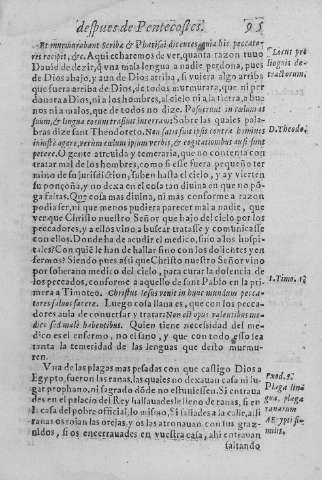 despues de Pentecostes. 95
Et murmurabant Scribæ & Pharisæi dicentes, quia hic peccato-
res recipit, &c. Aqui echaremos de ver, quanta razon tuuo
Dauid de dezir, q̃ vna mala lengua a nadie perdona, pues
de Dios abajo, y aun de Dios arriba, si vuiera algo arriba
que fuera arriba de Dios, de todos murmurara, que ni per
donara a Dios, ni a los hombres, al cielo ni a la, tierra, a bue
nos ni a malos, que de todos no dize. Posuerunt in cælum os
suum, & lingua eorum transiuit in terra: Sobre las quales pala-
bras dize sant Theodoreto. Non satis fuit ipsis contra homines
iniustè agere, verùm cælum ipsum verbis, & cogitationibus ausi sunt
petere. O gente atreuida y temeraria, que no contenta con
tratar mal de los hombres, como si fuesse fuera pequeño ter
mino de su jurisdiction, suben hasta el cielo, y ay vierten
su ponçoña, y no dexa en el cosa tan diuina en que no pō
ga faltas. Que cosa mas diuina, ni mas conforme a razon
podia ser, ni que menos pudiera parecer mal a nadie, que
ver que Christo nuestro Señor que bajo del cielo por los
peccadores, y a ellos vino a buscar tratasse y comunicasse
con ellos. Donde ha de acudir el medico, sino a los hospi-
tales? Con quiē le han de hallar sino con los dolientes y en
fermos? Siendo pues assi que Christo nuestro Señor vino
por soberano medico del cielo, para curar la dolencia de
los peccados, conforme a aquello de sant Pablo en la pri-
mera a Timoteo. Christus Iesus venit in hunc mundum pecca-
tores saluos facere. Luego cosa llana es, que con los pecca-
dores auia de conuersar y tratar: Non est opus valentibus me-
dico sed malè habentibus. Quien tiene necessidad del me-
dico es el enfermo, no el sano, y que con todo esso sea
tanta la temeridad de las lenguas que desto murmu-
ren.
Vna de las plagas mas pesadas con que castigo Dios a
Egypto, fueron las ranas, las quales no dexauan casa ni lu-
gar prophano, ni sagrado dōde no estuuiessen. Si entraua
des en el palacio del Rey hallauades le lleno de ranas, si en
la casa del pobre official, lo mismo, Si saliades a la calle, alli
ranas os roían las orejas, y os las atronauan con sus graz-
nidos, si os encerrauades en vuestra casa, ahi entrauan
saltando
Locut pro
lingnit de-
tractorum.
D. Theodo.
1. Timo. 1.
Exod. 8.
Plaga lin
gua, plaga
ranarum
AEgypti si-
milis.